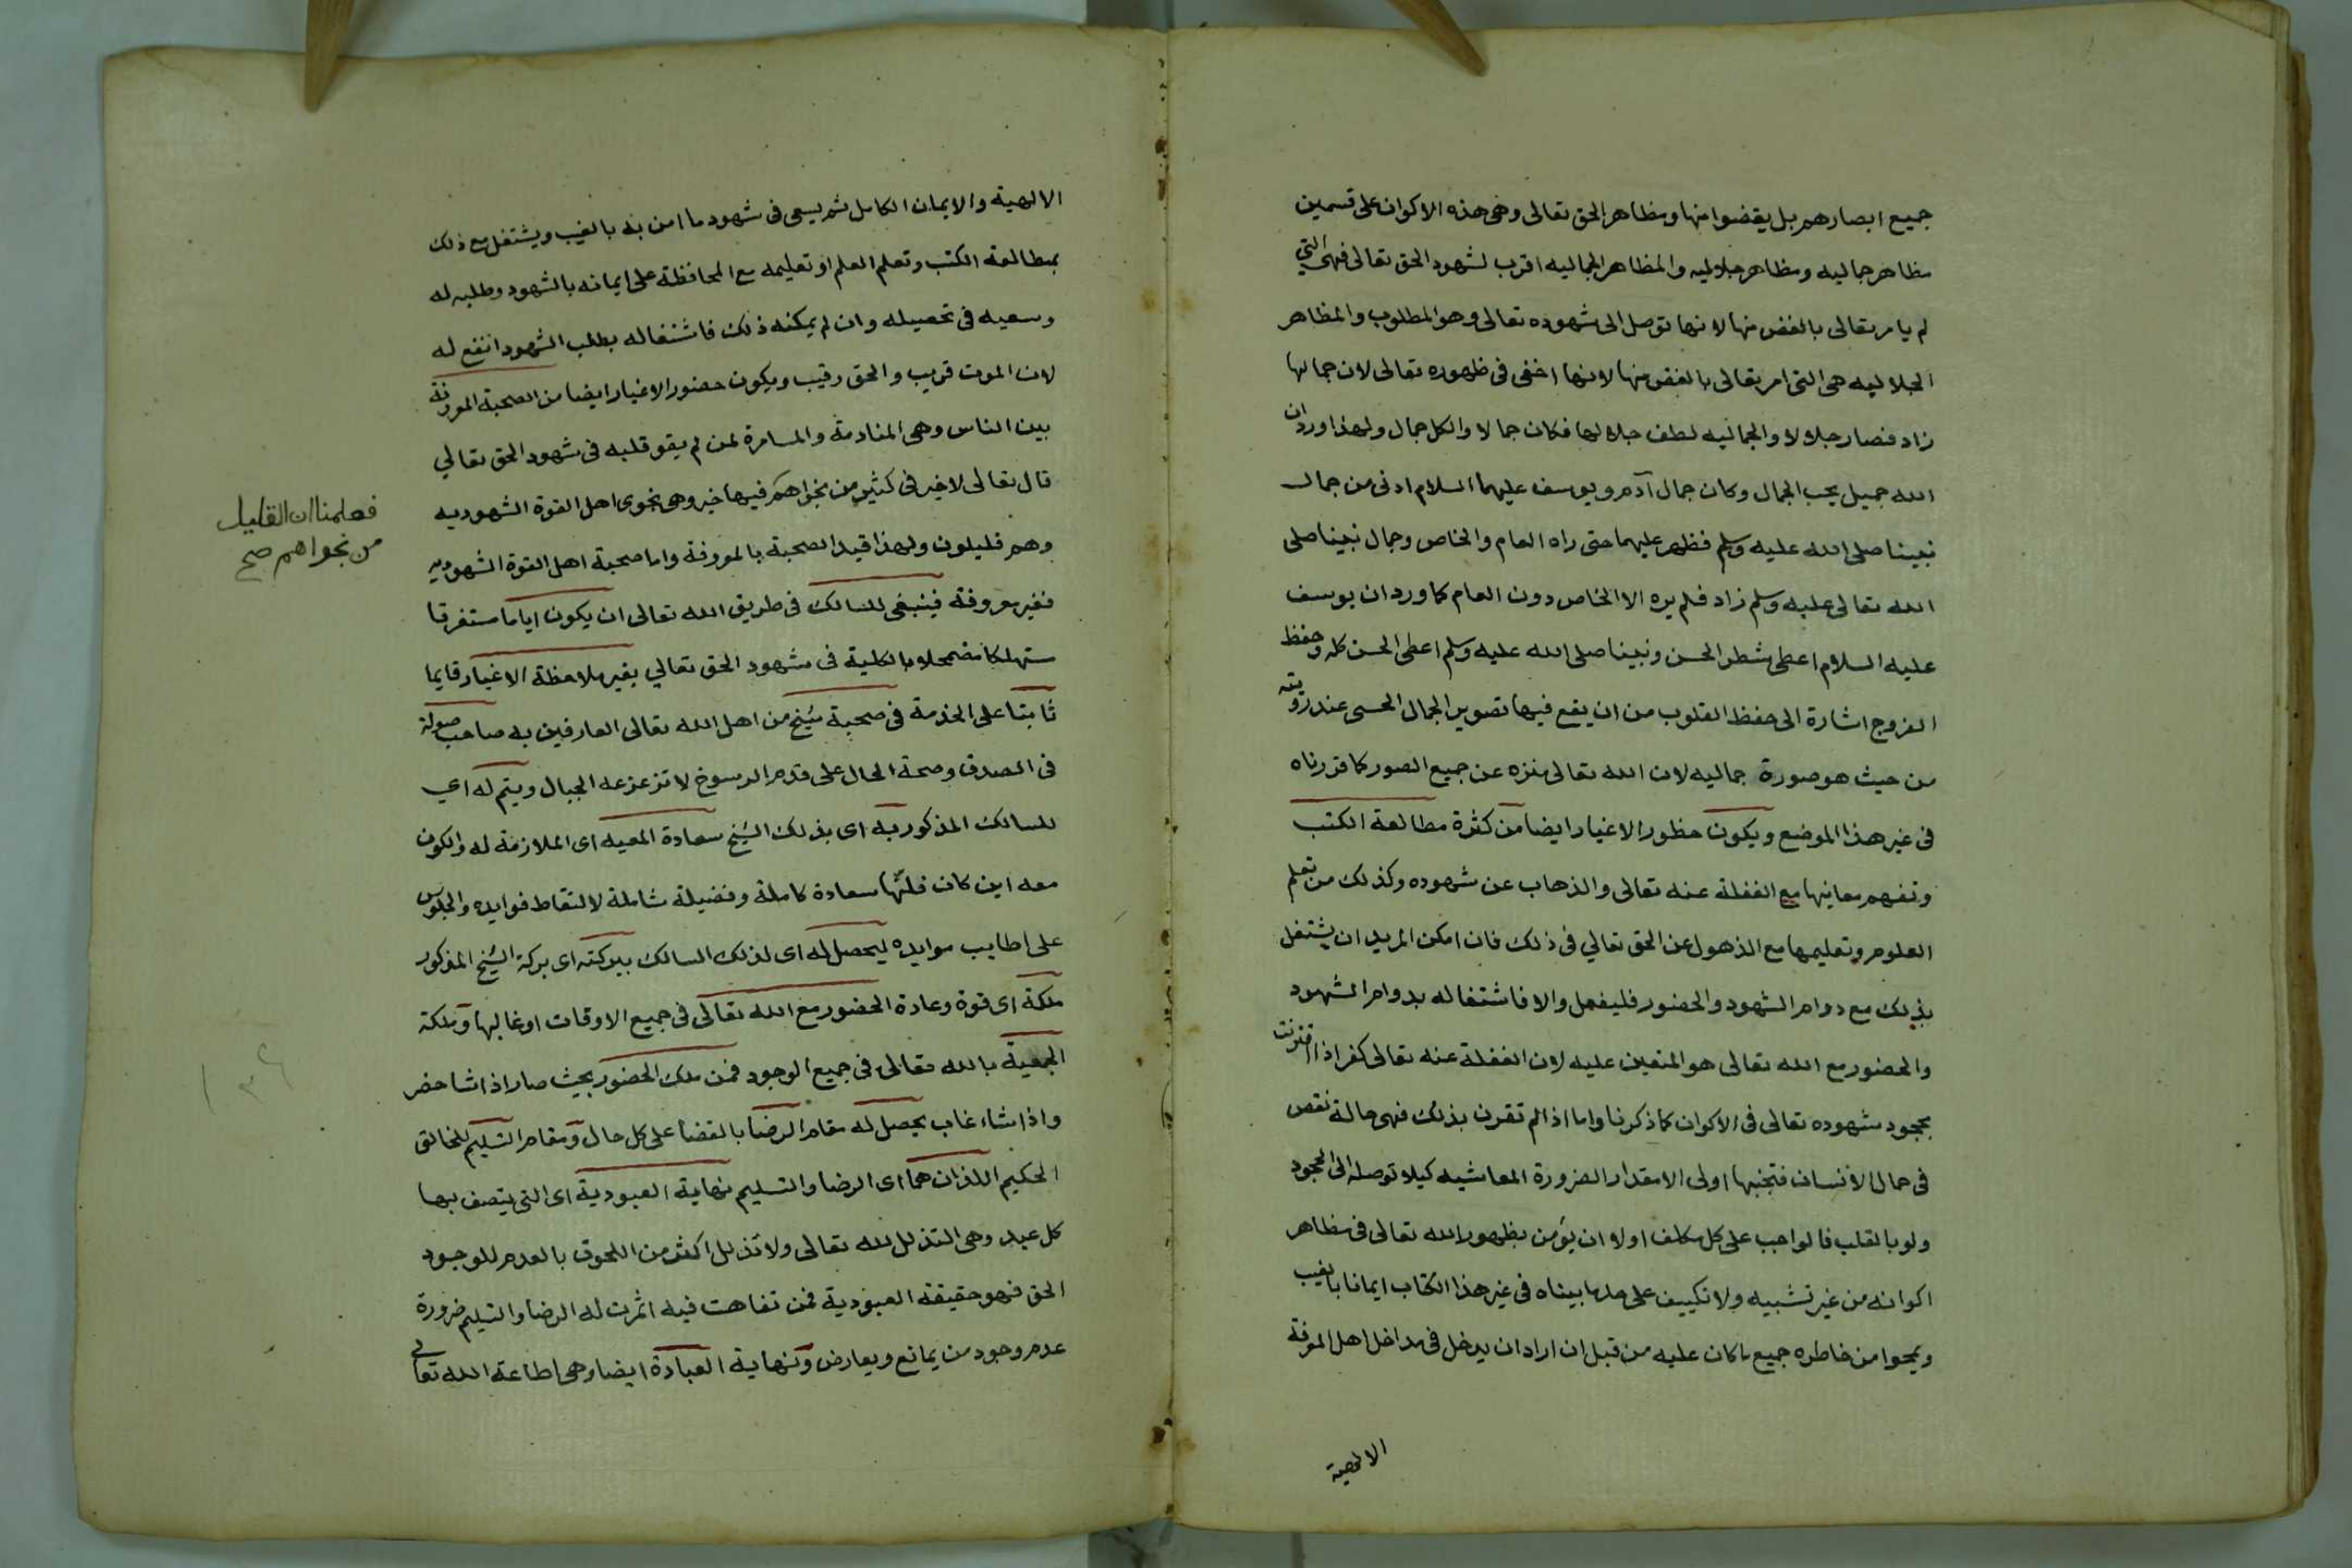 جميع ابصارهم بل يغضوا منها ومظاهر الحق تعالى وهى هذه الاكوان على قسمين
مظاهر جماليه ومظاهر جلاليه والمظاهر الجماليه اقرب لشهود الحق تعالى فهى التي
لم يامر تعالى بالغض منها لانها توصل الى شهوده تعالى وهو المطلوب والمظاهر
الجلاليه هى التى امر تعالى بالغض منها لانها اخفى فى ظهوره تعالى لان جمالها
زاد فصار جلالا والجماليه لطف جلالها فكان جمالا والكل جمال ولهذا ورد ان
الله جميل يحب الجمال وكان جمال آدم ويوسف عليهما السلام ادنى من جمال
نبينا صلى الله عليه وسلم فظهر عليهما حتى راه العام والخاص وجمال نبينا صلى
الله تعالى عليه وسلم زاد فلم يره الا الخاص دون العام كما ورد ان يوسف
عليه السلام اعطى شطر الحسن ونبينا صلى الله عليه وسلم اعطى الحسن كله وحفظ
الفروج اشارة الى حفظ القلوب من ان يقع فيها تصوير الجمال الحسى عند رؤيته
من حيث هو صورة جماليه لان الله تعالى منزه عن جميع الصور كما قررناه
فى غير هذا الموضع ويكون حظور الاغيار ايضا من كثرة مطالعة الكتب
وتفهم معانيها مع الغفلة عنه تعالى والذهاب عن شهوده وكذلك من تعلم
العلوم وتعليمها مع الذهول عن الحق تعالي فى ذلك فان امكن المريد ان يشتغل
بذلك مع دوام الشهود والحضور فليفعل والا فاشتغاله بدوام الشهود
والحضور مع الله تعالى هو المتعين عليه لان الغفلة عنه تعالى كفر اذا اقترنت
بجحود شهوده تعالى فى الاكوان كما ذكرنا واما اذا لم تقرن بذلك فهى حالة نقص
فى حال الانسان فتجنبها اولى الا مقدار الضرورة المعاشيه كيلا توصله الى الجحود
ولو بالقلب فالواجب على كل مكلف اولا ان يؤمن بظهور الله تعالى فى مظاهر
اكوانه من غير تشبيه ولا تكييف على ما بيناه فى غير هذا الكتاب ايمانا بالغيب
ويمحوا من خاطره جميع ما كان عليه من قبل ان اراد ان يدخل فى مداخل اهل المعرفة
الالهية
الالهية والايمان الكامل ثم يسعى فى شهود ما امن به بالغيب ويشتغل مع ذلك
بمطالعة الكتب وتعلم العلم او تعليمه مع المحافظة على ايمانه بالشهود وطلبه له
وسعيه فى تحصيله وان لم يمكنه ذلك فاشتغاله بطلب الشهود انفع له
لان الموت قريب والحق رقيب ويكون حضور الاغيار ايضا من الصحبة المعروفة
بين الناس وهى المنادمة والمسامرة لمن لم يقو قلبه فى شهود الحق تعالي
قال تعالى لا خير فى كثير من نجواهم فيها خير وهى نجوى اهل القوة الشهوديه
فعلمنا ان القليل
من نجواهم صح
وهم قليلون ولهذا قيد الصحبة بالمعروفة واما صحبة اهل القوة الشهوديه
فغير معروفة فينبغى للسالك فى طريق الله تعالى ان يكون اياما مستغرقا
مستهلكا مضمحلا بالكلية فى شهود الحق تعالي بغير ملاحظة الاغيار قايما
ثابتا على الخدمة فى صحبة شيخ من اهل الله تعالى العارفين به صاحب صولة
فى الصدق وصحة الحال على قدم الرسوخ لا تزعزعه الجبال ويتم له اي
للسالك المذكور به اى بذلك الشيخ سعادة المعيه اى الملازمة له والكون
معه اين كان فانها سعادة كاملة وفضيلة شاملة لالتقاط فوايده والجلوس
على اطايب موايده ليحصل له اى لذلك السالك ببركته اى بركة الشيخ المذكور
ملكة اى قوة وعادة الحضور مع الله تعالى فى جميع الاوقات او غالبها وملكة
الجمعية بالله تعالى فى جميع الوجود فمن ملك الحضور بحيث صار اذا شا حضر
واذا شاء غاب يحصل له مقام الرضا بالقضا على كل حال ومقام التسليم للخالق
الحكيم اللذان هما اى الرضا والتسليم نهاية العبودية اى التى يتصف بها
كل عبد وهى التذلل لله تعالى ولا تذلل اكثر من اللحوق بالعدم للوجود
الحق فهو حقيقة العبودية فمن تفاهت فيه اثمرت له الرضا والتسليم ضرورة
عدم وجود من يمانع ويعارض ونهاية العبادة ايضا وهى اطاعة الله تعالى